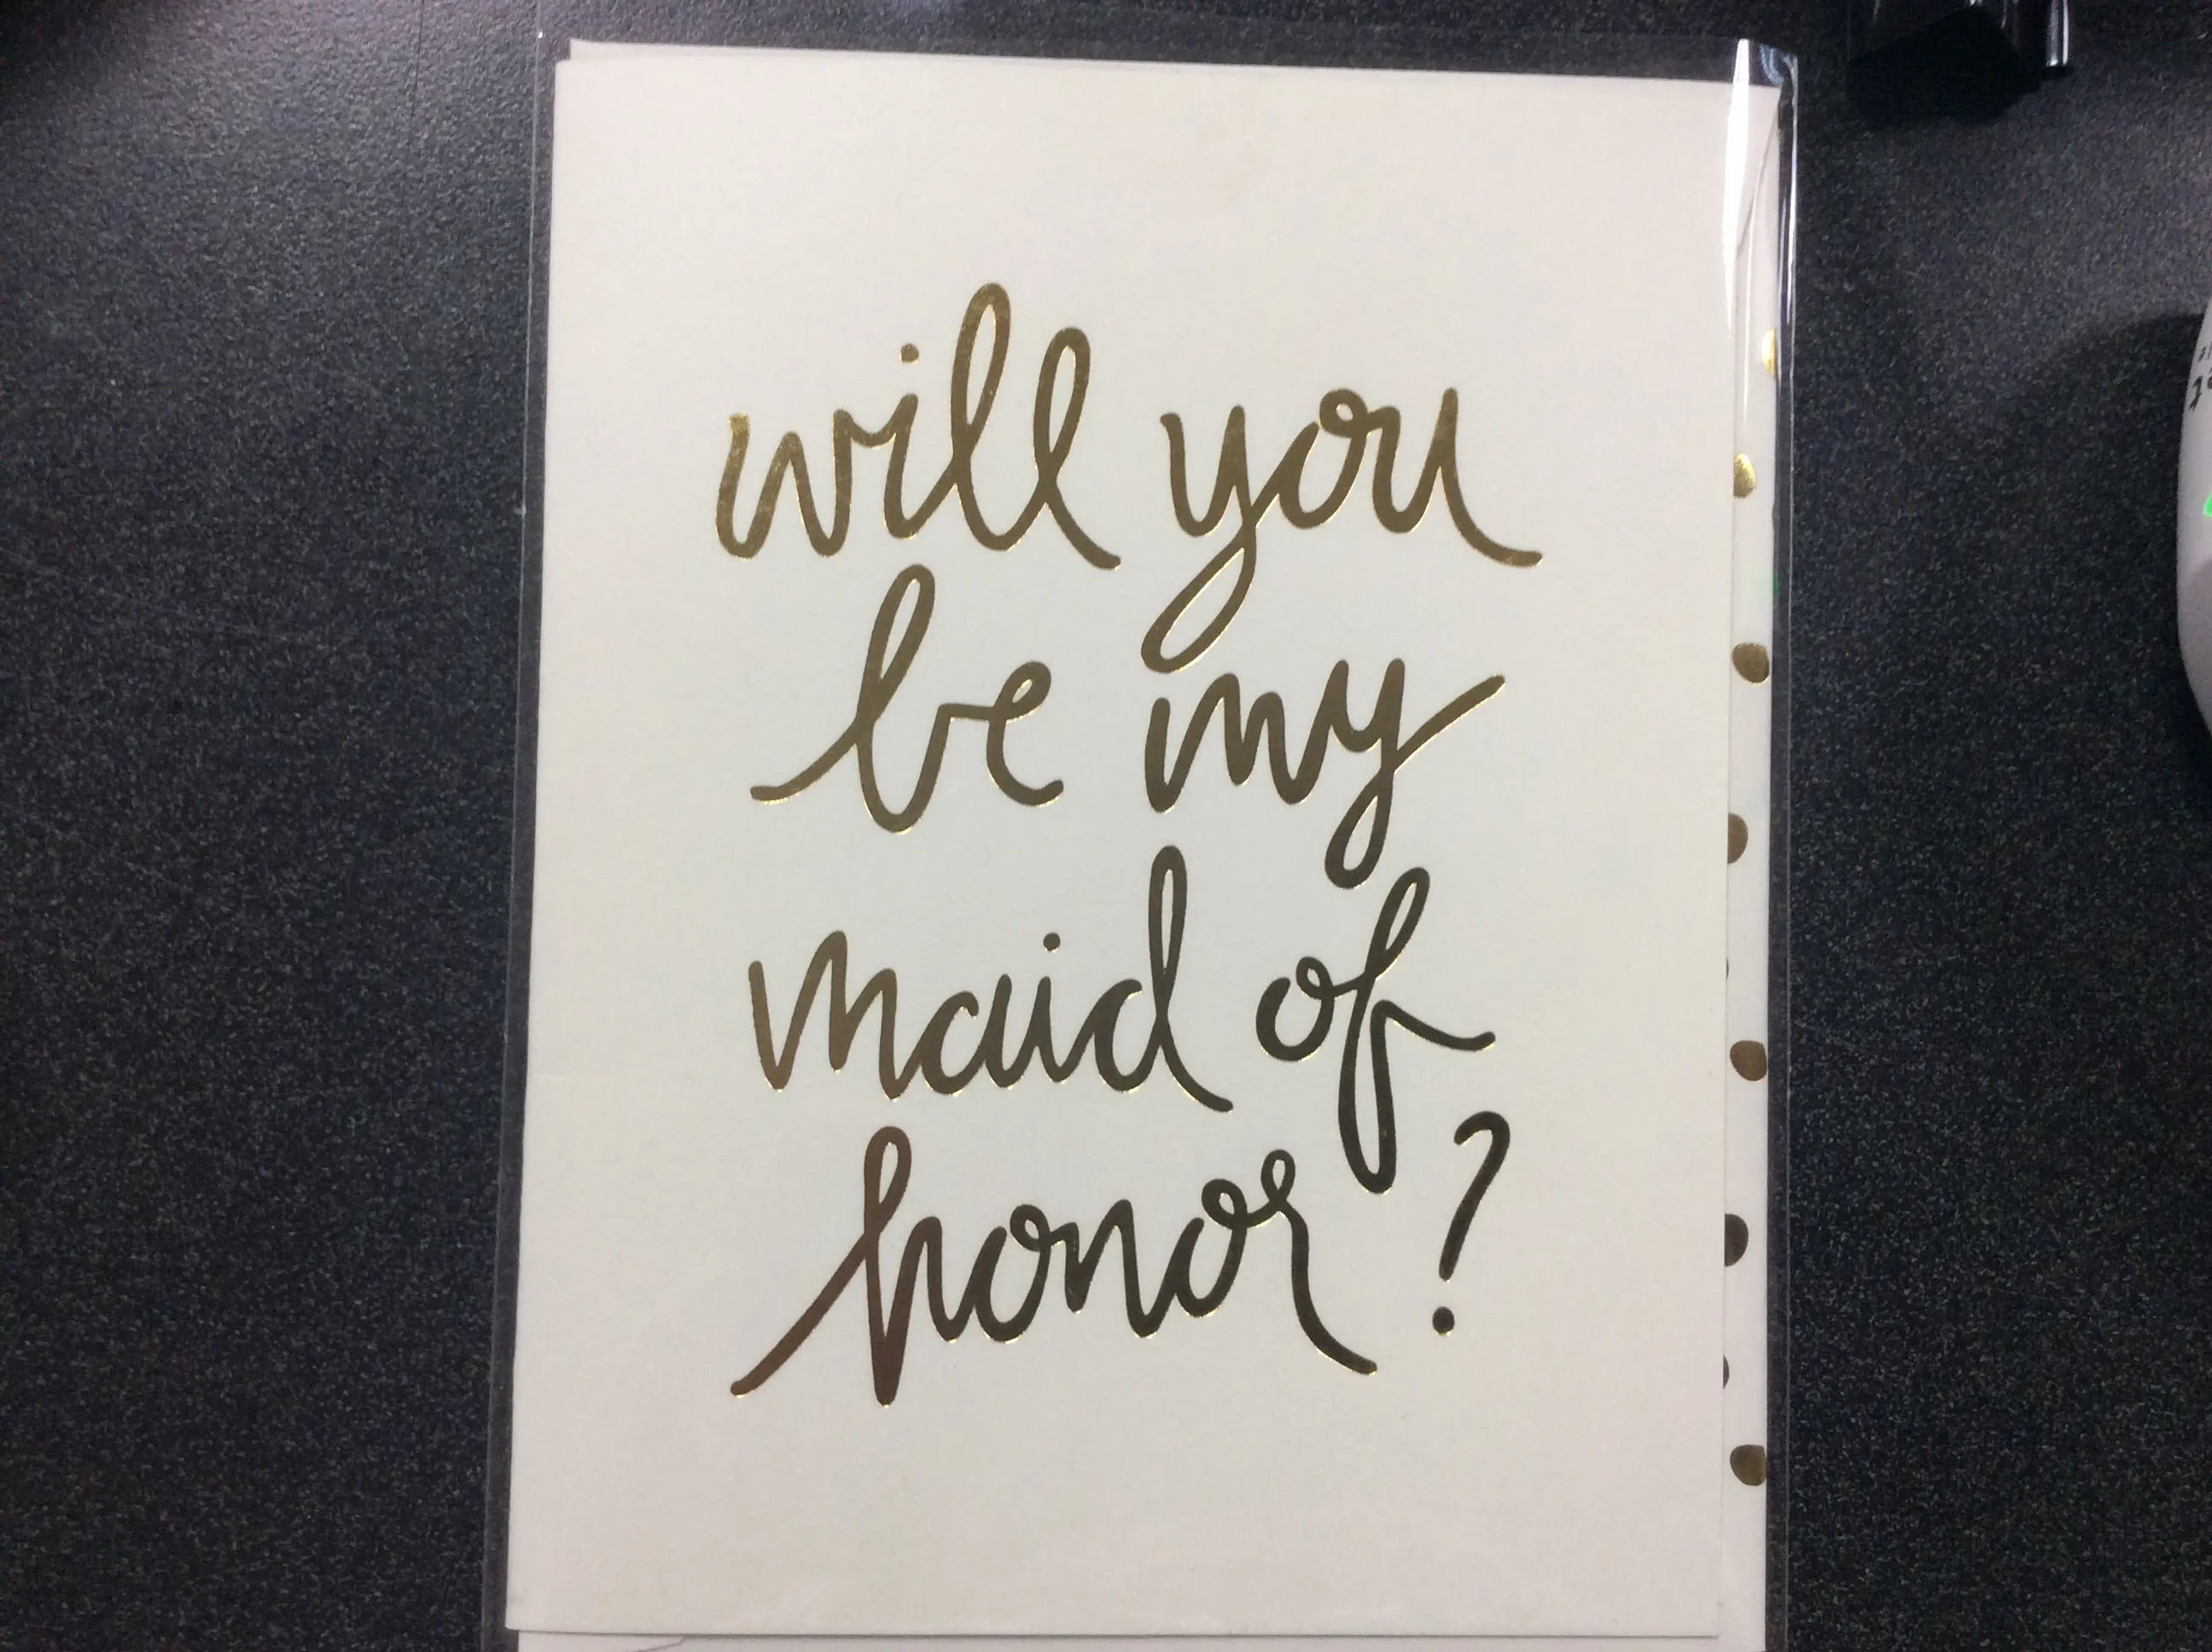 will you
be my
maid of
honor?